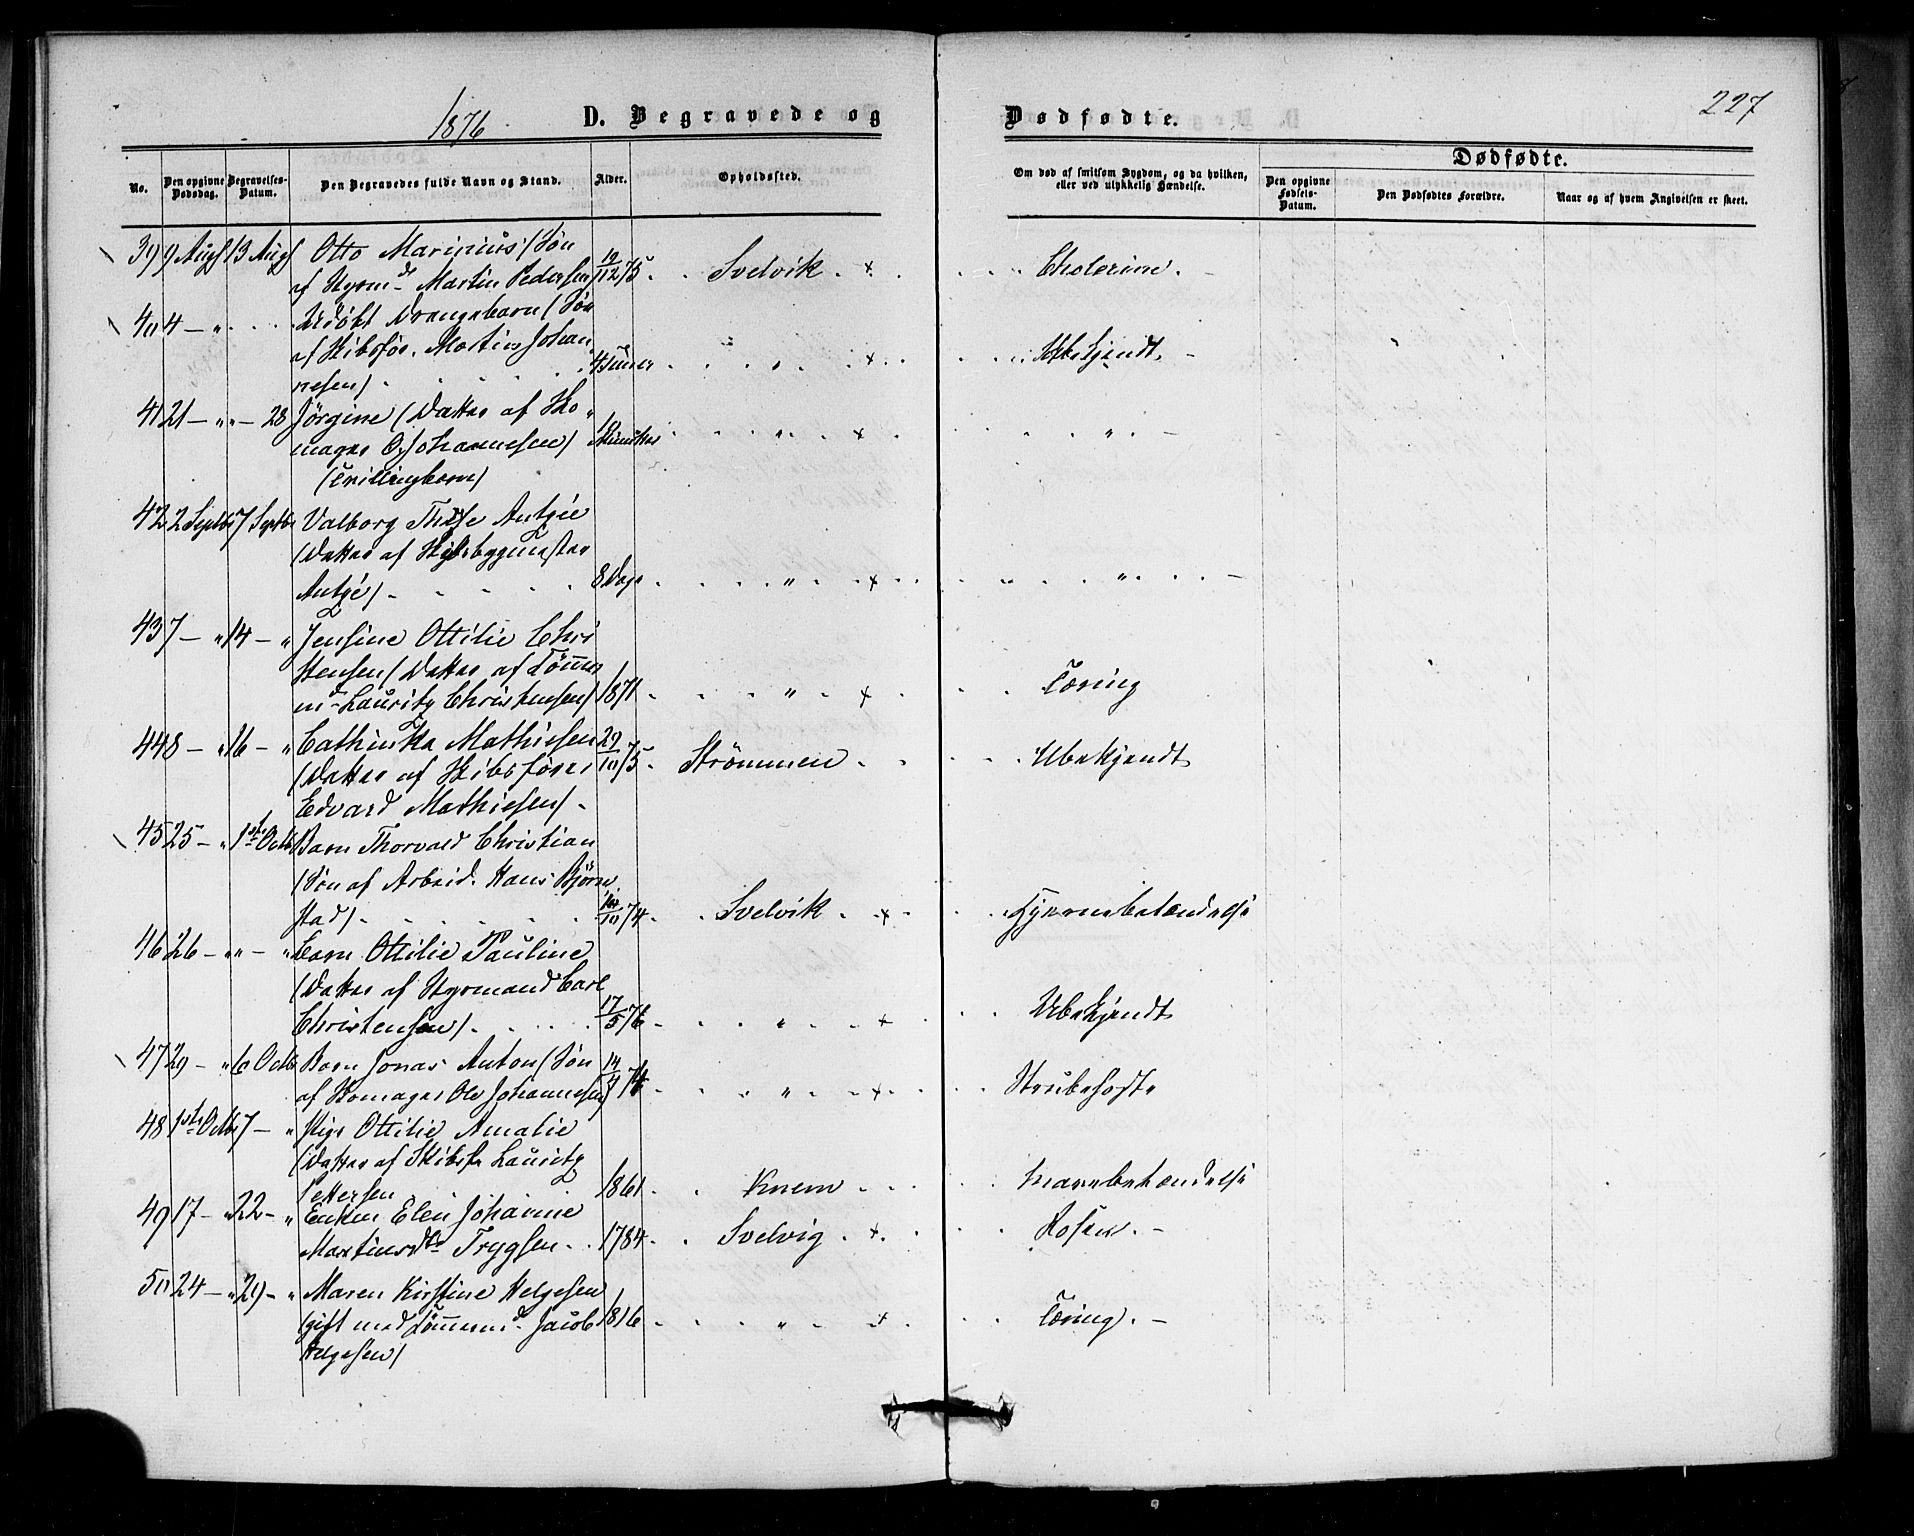 1876 D. Begravede og
Dødfødte. 227
No. Den opgivne Dødsdag. Begravelses-Datum. Den Begravedes fulde Navn og Stand. Alder. Opholdssted.
Om død af smitsom Sygdom, og da hvilken, eller ved ulykkelig Hændelse.
Dødfødte.
Den opgivne Fødsels-Datum. Den Dødfødtes Forældre. Naar og af hvem Angivelsen er skeet.
39 9 Augs 13 Augs Otto Marinius (Søn
af Styrmd Martin Pedersen) 12/75 Svelvik + Cholerine. -
40 4 - " Udøbt Drengebarn (Søn
af Skibsfør. Martin Johan
nesen) 4 Timer " + Ubekjendt. -
41 21 - " " - 28 Jörgine (Datter af Sko
mager O. Johannesen) Minutter " + " -
(Trillingbarn)
42 2 Septbr 7 Septbr Valborg Antzée
(Datter af Skibsbygmester
Antzée) 8 Dage " + " -
43 7 - " 14 - " Jensine Ottilie Chri
stensen (Datter af Tömmer
md Lauritz Christensen) 1871 " + Tæring
44 8 - " 16 - " Cathinka Mathisen 29/10 75 Strömmen Ubekjendt
(Datter af Skibsförer
Edvard Mathiesen) -
45 25 - " 1ste Octb Barn Thorvald Christian
(Søn af Arbeid. Hans Björn
stad) /10 74 Svelvik + Hjernebetændelse
46 26 - " " - " Barn Ottilie Pauline
(Datter af Styrmand Carl
Christensen) 17/5 76 " + Ubekjendt
47 29 - " 6 Octb Barn Jonas Anton (Søn 14/4 74
af Skomager Ole Johannesen) " + Strubehoste
48 1ste Octb 7 - " Pige Ottilie Amalie
(Datter af Skibsf. Lauritz
Pettersen 1861 Knem Mavebetændelse
49 17 - " 22 - " Enken Elen Johanne
Martinsdr Trygsen 1784 Svelvig + Rosen. -
50 24 - " 29 - " Maren Kirstine Helgesen
(gift med Tömmermd Jacob 1816 " + Tæring. -
Helgesen)